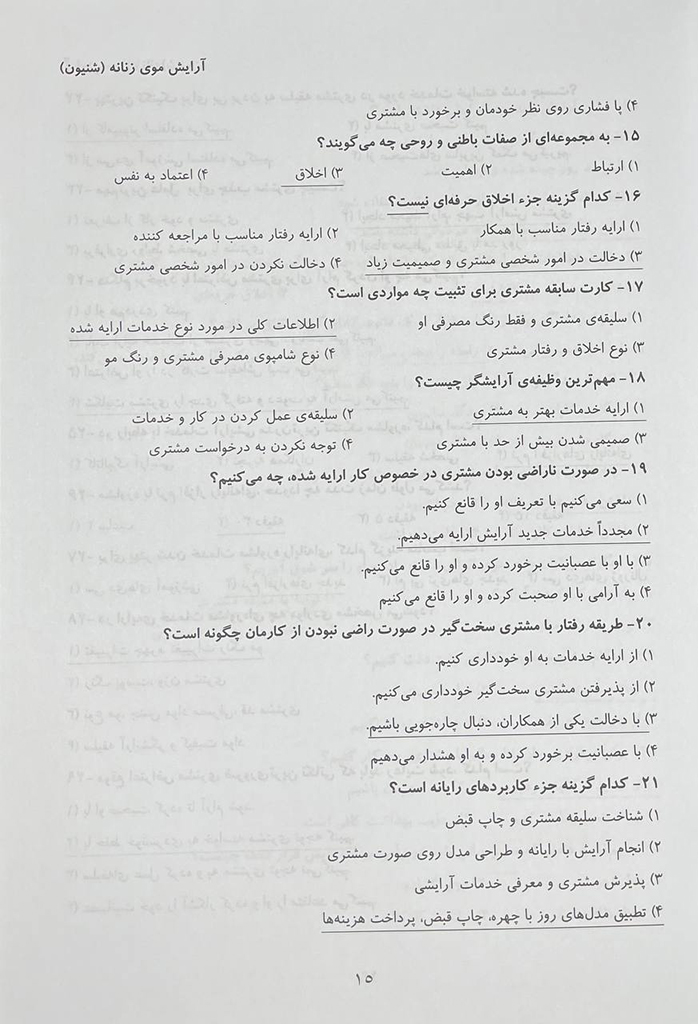 آرایش موی زنانه (شنیون)
۴) پا فشاری روی نظر خودمان و برخورد با مشتری
۱۵- به مجموعه‌ای از صفات باطنی و روحی چه می‌گویند؟
۱) ارتباط ۲) اهمیت ۳) اخلاق ۴) اعتماد به نفس
۱۶- کدام گزینه جزء اخلاق حرفه‌ای نیست؟
۱) ارایه رفتار مناسب با همکار ۲) ارایه رفتار مناسب با مراجعه کننده
۳) دخالت در امور شخصی مشتری و صمیمیت زیاد ۴) دخالت نکردن در امور شخصی مشتری
۱۷- کارت سابقه مشتری برای تثبیت چه مواردی است؟
۱) سلیقه‌ی مشتری و فقط رنگ مصرفی او ۲) اطلاعات کلی در مورد نوع خدمات ارایه شده
۳) نوع اخلاق و رفتار مشتری ۴) نوع شامپوی مصرفی مشتری و رنگ مو
۱۸- مهم‌ترین وظیفه‌ی آرایشگر چیست؟
۱) ارایه خدمات بهتر به مشتری ۲) سلیقه‌ی عمل کردن در کار و خدمات
۳) صمیمی شدن بیش از حد با مشتری ۴) توجه نکردن به درخواست مشتری
۱۹- در صورت ناراضی بودن مشتری در خصوص کار ارایه شده، چه می‌کنیم؟
۱) سعی می‌کنیم با تعریف او را قانع کنیم.
۲) مجدداً خدمات جدید آرایش ارایه می‌دهیم.
۳) با او با عصبانیت برخورد کرده و او را قانع می‌کنیم.
۴) به آرامی با او صحبت کرده و او را قانع می‌کنیم
۲۰- طریقه رفتار با مشتری سخت‌گیر در صورت راضی نبودن از کارمان چگونه است؟
۱) از ارایه خدمات به او خودداری کنیم.
۲) از پذیرفتن مشتری سخت‌گیر خودداری می‌کنیم.
۳) با دخالت یکی از همکاران، دنبال چاره‌جویی باشیم.
۴) با عصبانیت برخورد کرده و به او هشدار می‌دهیم
۲۱- کدام گزینه جزء کاربردهای رایانه است؟
۱) شناخت سلیقه مشتری و چاپ قبض
۲) انجام آرایش با رایانه و طراحی مدل روی صورت مشتری
۳) پذیرش مشتری و معرفی خدمات آرایشی
۴) تطبیق مدل‌های روز با چهره، چاپ قبض، پرداخت هزینه‌ها
۱۵